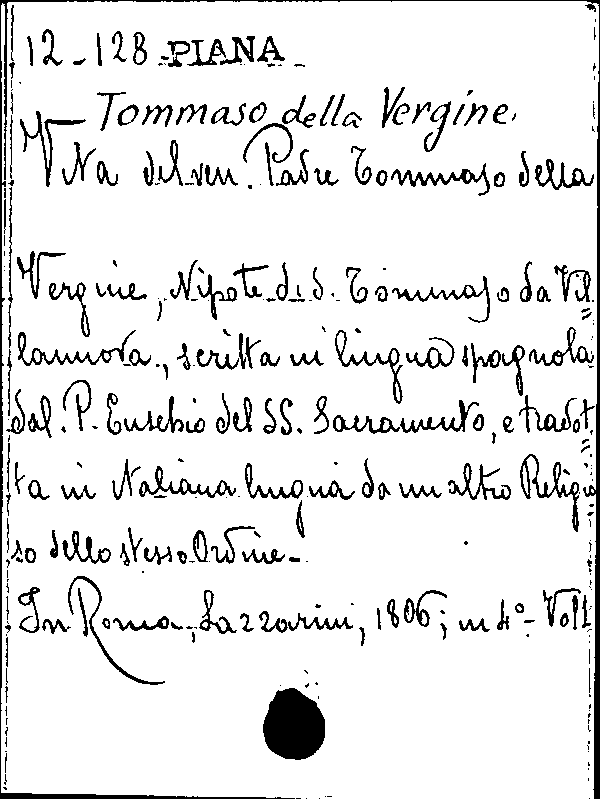 12-128 PIANA
Tommaso della Vergine.
Vita del ven. Padre Tommaso della
Vergine, Nipote di S. Tommaso da Vil=
lannova, scritta in lingua spagnola
dal P. Eusebio del SS. Sacramento, e tradot=
ta in italiana lingua da un altro Religio=
so dello stesso Ordine-
In Roma, Lazzarini, 1806; in 4°- Vol 1